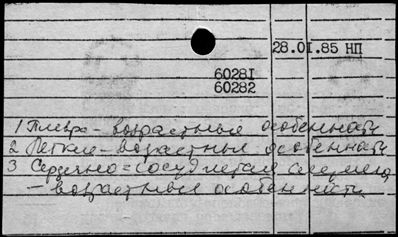 28.01.85 НП
60281
60282
1 Плевра - возрастные особенности
2 Легкие - возрастные особенности
3 Сердечно = сосудистая система
- возрастные особенности